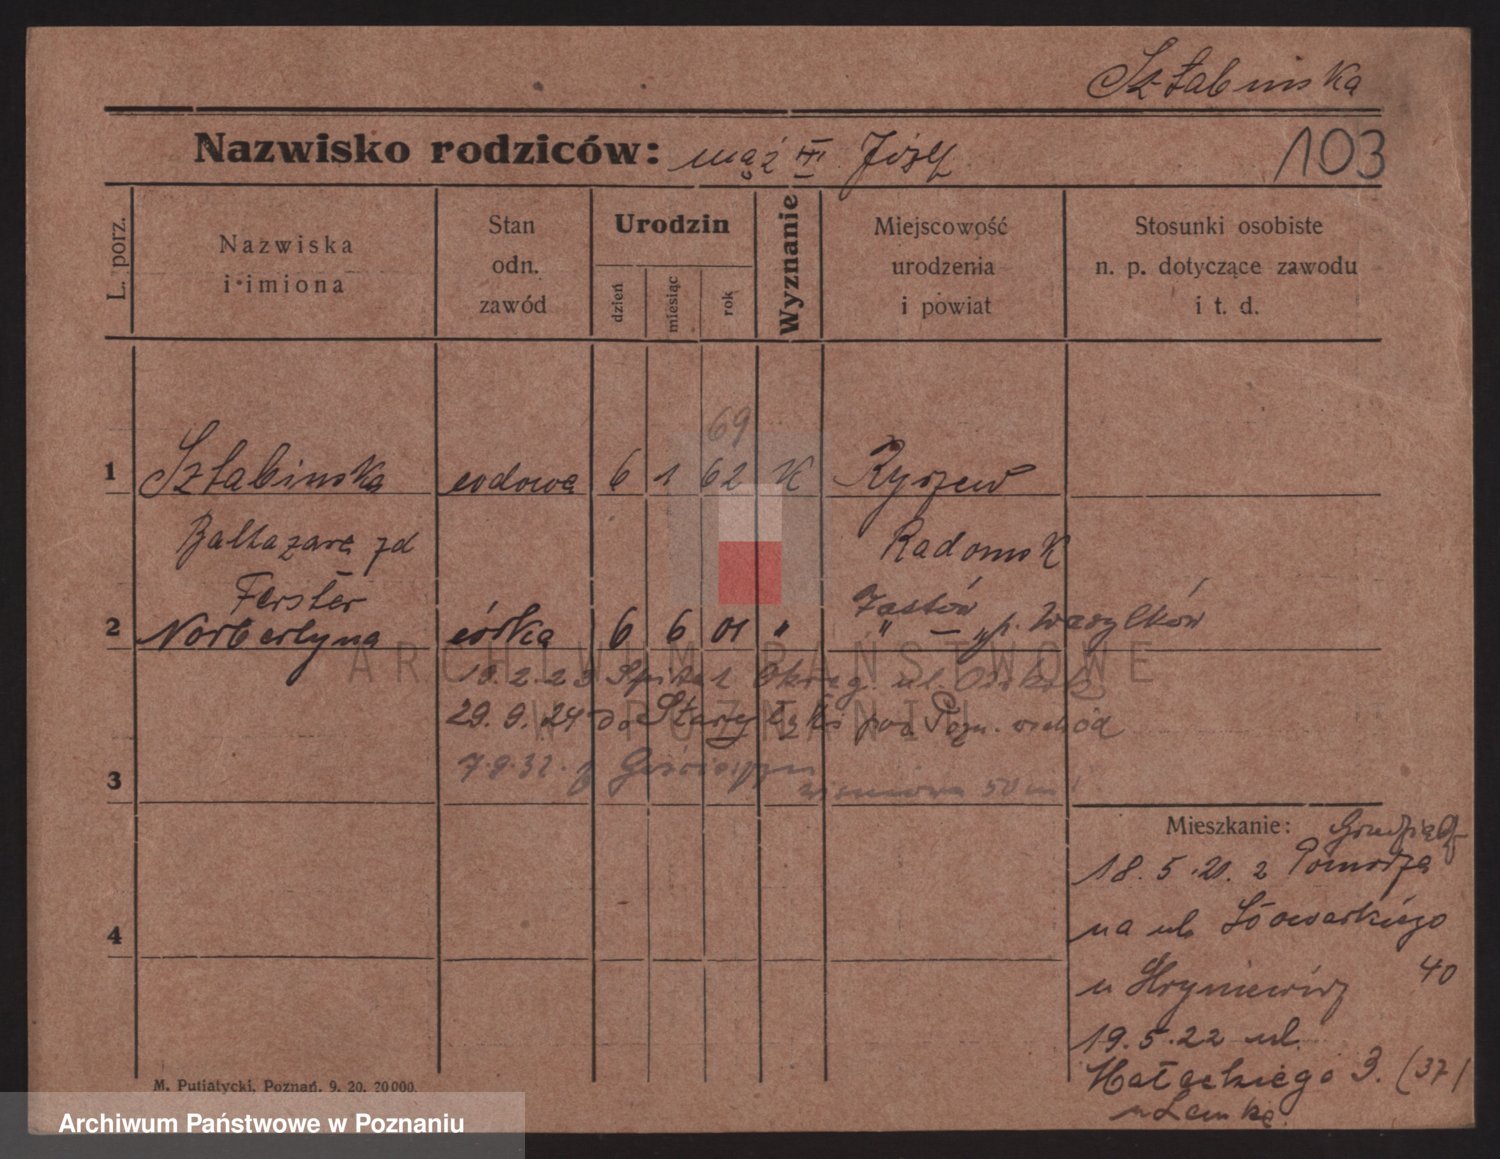 Sztabinska
Nazwisko rodziców: mąż III. Józef
103
L. porz.
Nazwiska
i imiona
Stan
odn.
zawód
Urodzin
dzień
miesiąc
rok
Wyznanie
Miejscowość
urodzenia
i powiat
Stosunki osobiste
n. p. dotyczące zawodu
i t. d.
69
1 Sztabinska wdowa 6 1 62 K Ryszew
Baltazara zd Radomsk
Ferster
2 Norbertyna córka 6 6 01 " Zastów p. Wasylków
10.2.23 Szpital Okręg. ul.
29.9.24 do Starzy pod Pozn. wschód
7.9.32. z
3
50 m
Mieszkanie: Grudziądz
18.5.20. z Pomorza
na ul.
40
u Hryniewicz
4
19.5.22 ul.
Małeckiego 3. (37)
u Lemke.
M. Putiatycki, Poznań. 9. 20. 20000.
ARCHIWUM PAŃSTWOWE
W POZNANIU
Archiwum Państwowe w Poznaniu